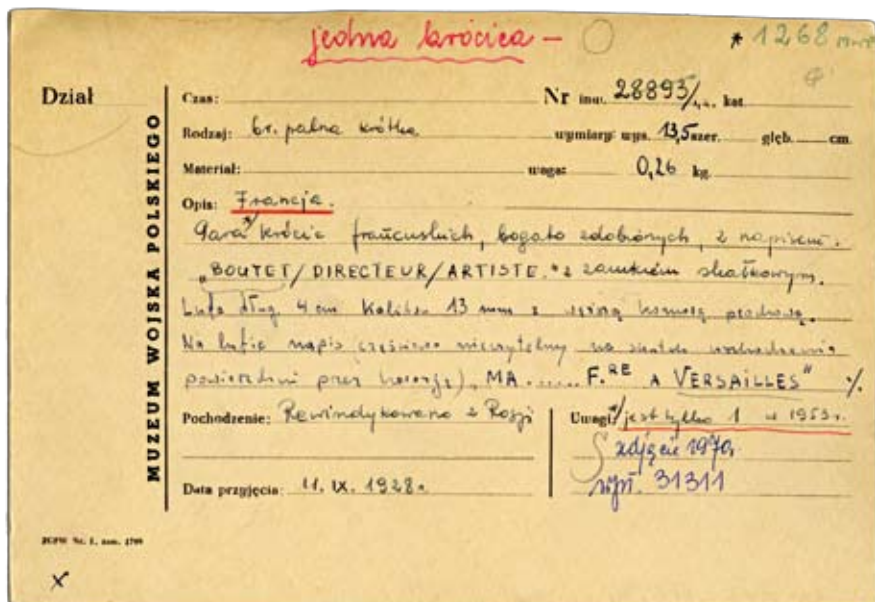 jedna krócica –
* 1268
Dział
MUZEUM WOJSKA POLSKIEGO
Czas: Nr inw. 28893/ kat.
Rodzaj: br. palna krótka wymiary: wys. 13,5 szer. głęb. cm.
Materiał: waga: 0,26 kg.
Opis: Francja.
Para *) krócic francuskich, bogato zdobionych, z napisem:
„BOUTET/DIRECTEUR/ARTISTE." z zamkiem skałkowym.
Lufa dług. 4 cm Kaliber 13 mm z komorą prochową.
Na lufie napis (częściowo nieczytelny na skutek uszkodzenia
powierzchni przez korozję), MA..... F.RE A VERSAILLES" ./.
Pochodzenie: Rewindykowano z Rosji
Uwagi *) jest tylko 1 w 1953 r.
zdjęcie 1970
31311
Data przyjęcia: 11. IX. 1928 r.
x